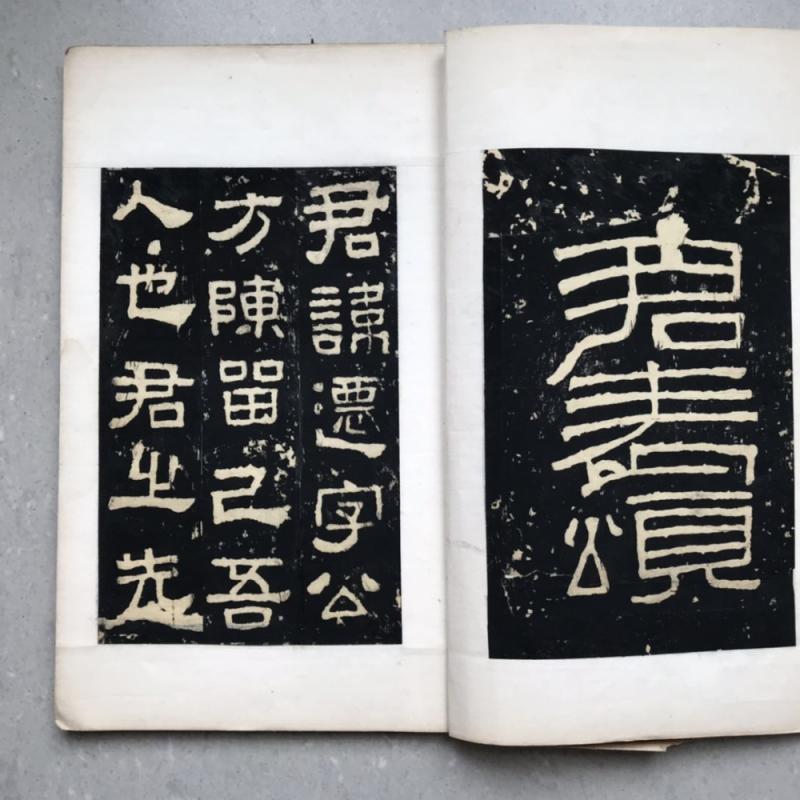 君表頌
君諱遷字公
方陳留己吾
人也君之先